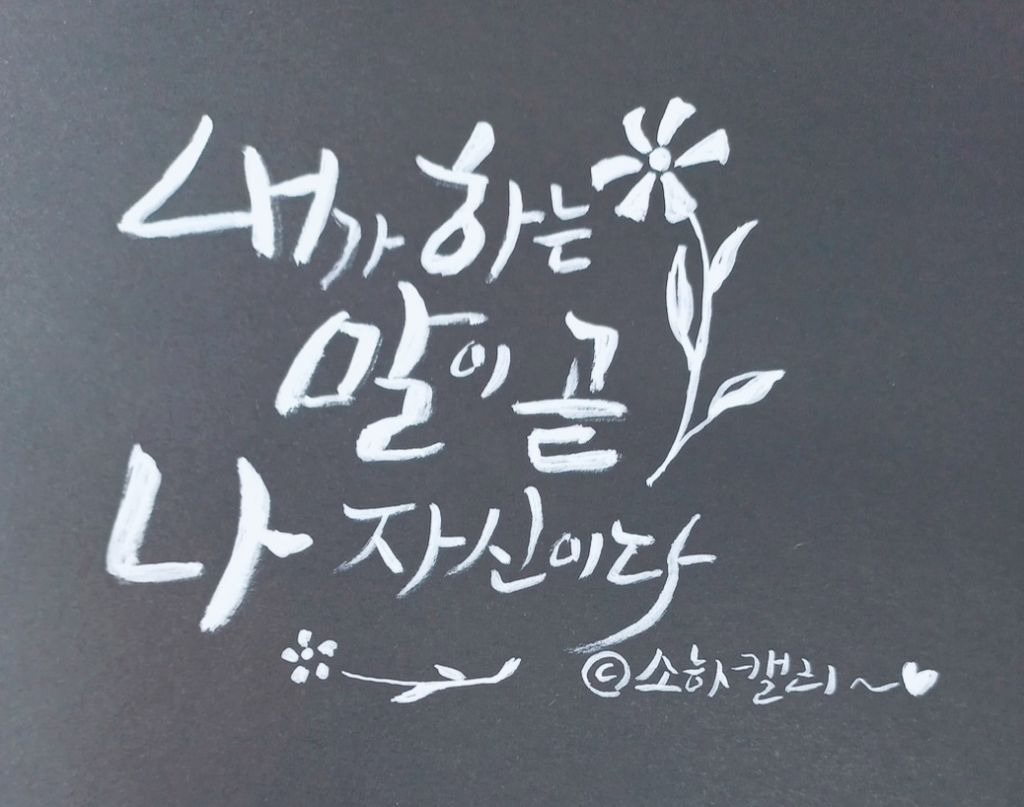 내가 하는
말이 곧
나 자신이다
©소하캘리~♥